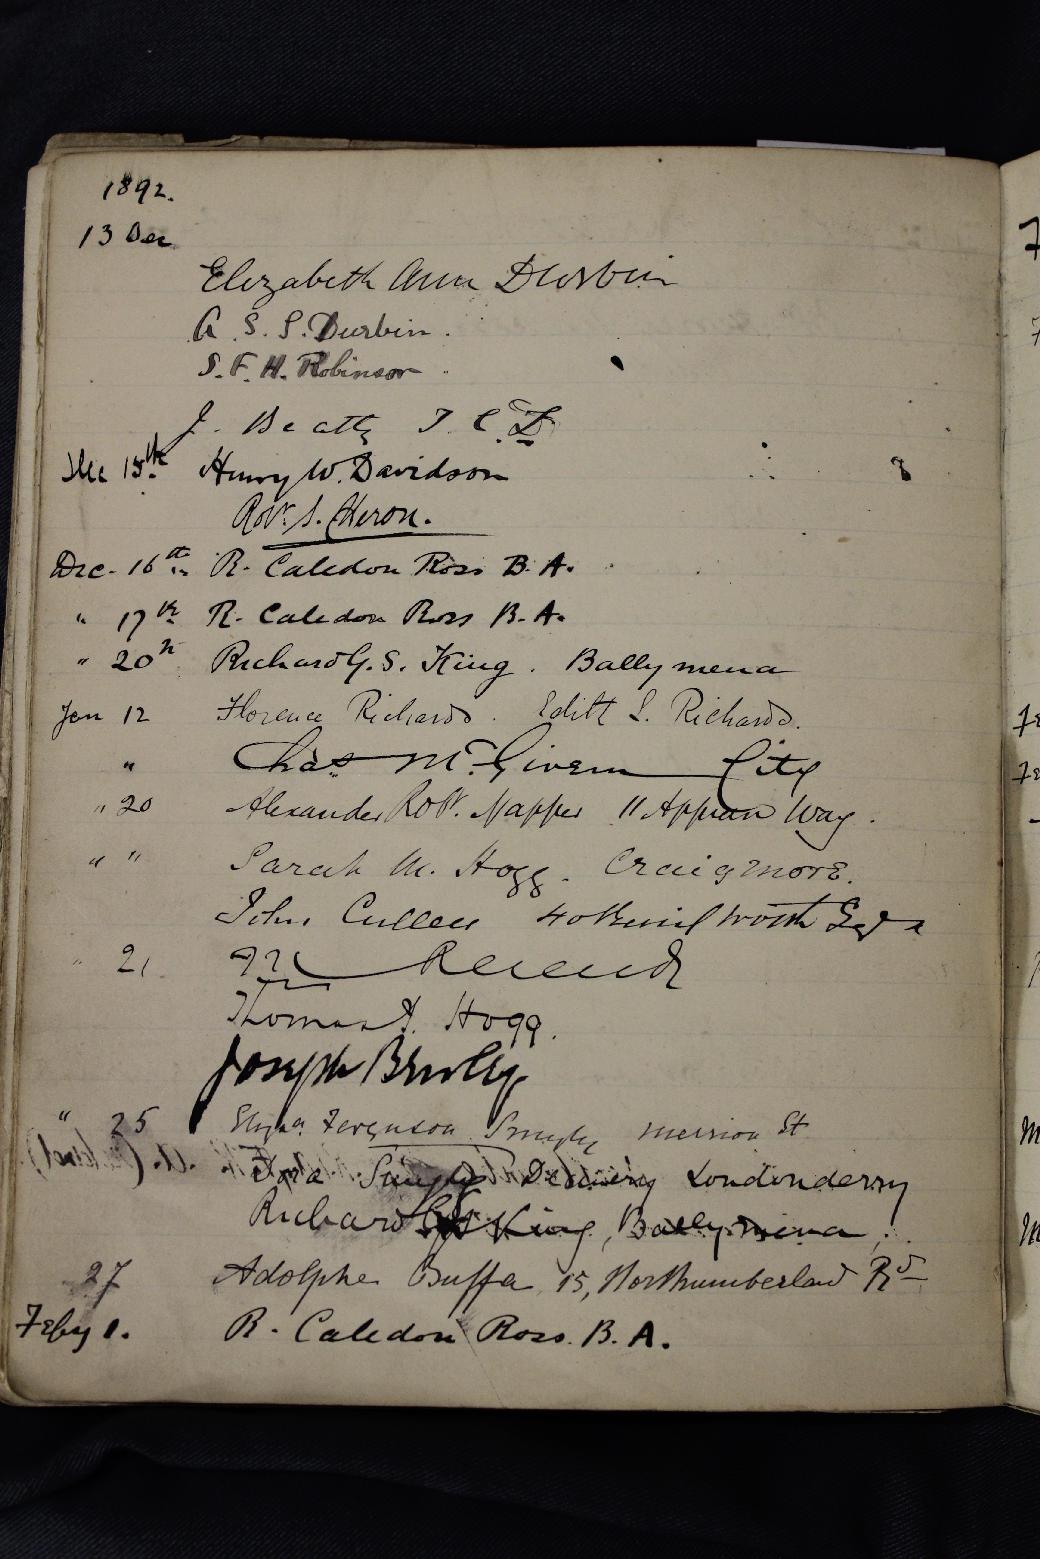 1892.
13 Dec
Elizabeth Ann Durbin
A. S. S. Durbin.
S. F. H. Robinson
J. Beatty T. C. D.
Dec 15th Henry W. Davidson
Robt. S. Heron.
Dec. 16th R. Caledon Ross B. A.
" 17th R. Caledon Ross B. A.
" 20th Richard G. S. King. Ballymena
Jan 12 Florence Richards. Edith L. Richards.
" Chas McGivern City
" 20 Alexander Robt. Napper 11 Appian Way.
" " Sarah M. Hogg. Craigmore.
John Cullen 40 Kenilworth Sqre
" 21
Thomas A. Hogg.
Joseph
" 25 Ferguson Smyly Merrion St
Smyly Deanery Londonderry
Richard King, Ballymena,
27 Adolphe Buffa 15, Northumberland Rd
Feby 1. R. Caledon Ross. B. A.